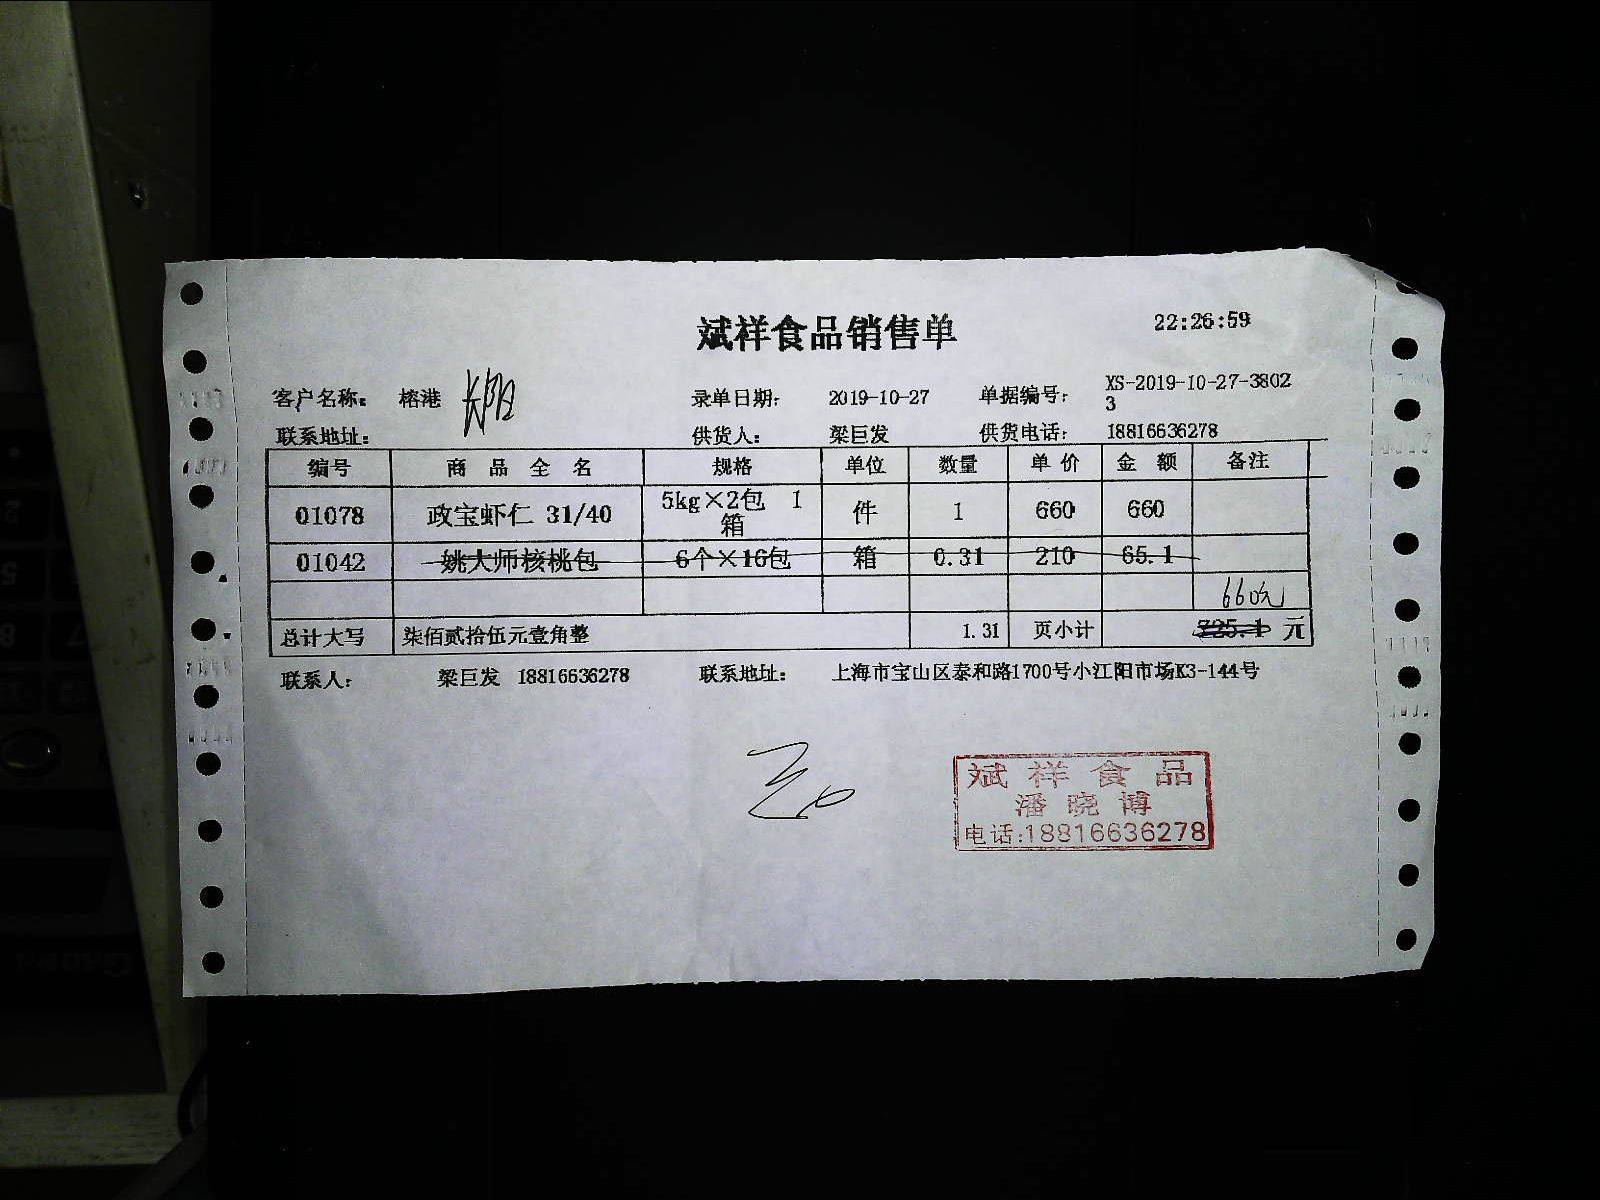 斌祥食品销售单 22:26:59
客户名称: 榕港 长阳 录单日期: 2019-10-27 单据编号: XS-2019-10-27-3802
3
联系地址: 供货人: 梁巨发 供货电话: 18816636278
编号 商品全名 规格 单位 数量 单价 金额 备注
01078 政宝虾仁 31/40 5kg×2包 1
箱 件 1 660 660
01042 姚大师核桃包 6个×16包 箱 0.31 210 65.1
660元
总计大写 柒佰贰拾伍元壹角整 1.31 页小计 725.1 元
联系人: 梁巨发 18816636278 联系地址: 上海市宝山区泰和路1700号小江阳市场K3-144号
斌祥食品
潘晓博
电话:18816636278